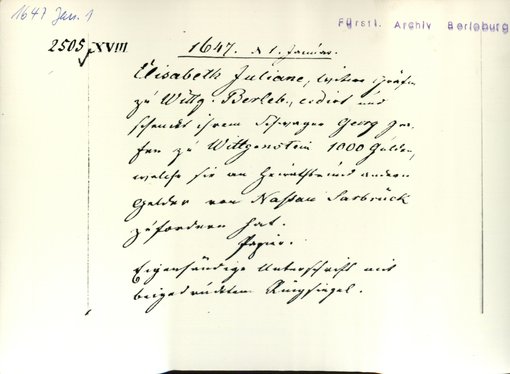 1647 Jan. 1
Fürstl. Archiv Berleburg
2505 XVIII
1647. d 1. Januar.
Elisabeth Juliane, Gräfin
zu Wittg. Berleb., cedirt und
schenckt ihrem Schwager Georg Gra-
fen zu Wittgenstein 1000 Gulden,
welche sie an Heiraths und andern
Gelder von Nassau Sarbrück
zufordern hat.
Papier.
Eigenhändige Unterschrift mit
beigedrücktem Ringsiegel.